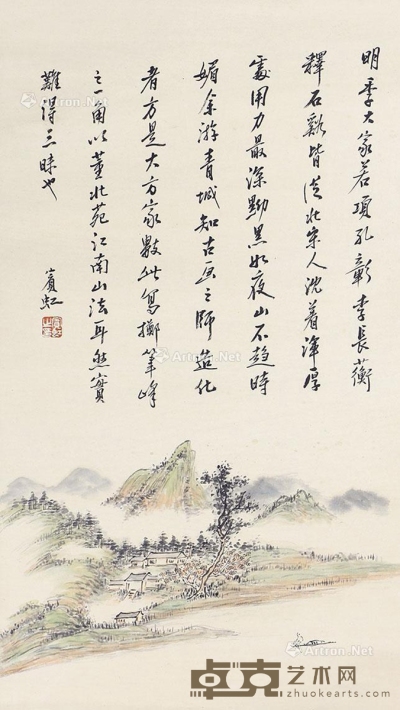 明季大家若項孔彰李長蘅
釋石谿皆從北宋人沈着渾厚
處用力最深黝黑如夜山不趨時
媚余游青城知古畫之師造化
者方是大方家數此寫擲筆峰
之一角以董北苑江南山法耳然實
難得三昧也
賓虹
Artron.Net
卓克艺术网
zhuokearts.com